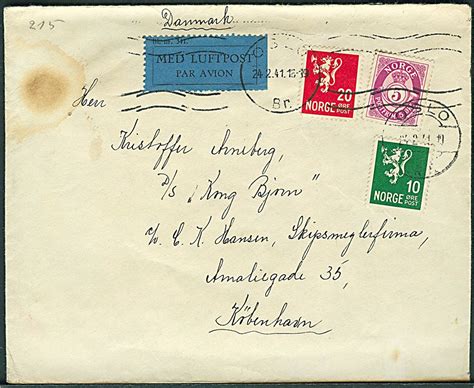 215
Danmark
MED LUFTPOST
PAR AVION
OSLO
24.2.41.18-19
Br.
20
NORGE ØRE
POST
NORGE
5
10
NORGE ØRE
POST
Herr
Kristoffer Arneberg
D/S "Kong Bjørn"
c/o C. K. Hansen, Skipsmeglerfirma,
Amaliegade 35,
København